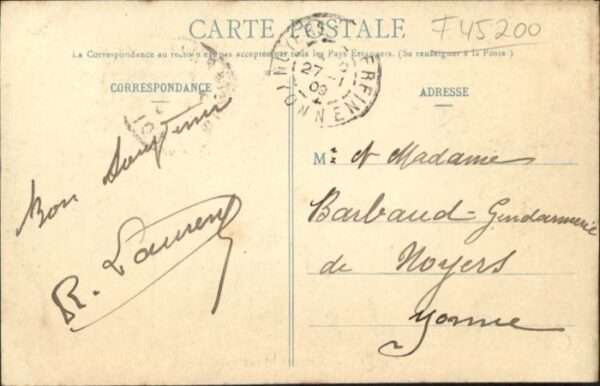 CARTE POSTALE
F45200
La Correspondance au recto n'est pas acceptée par tous les Pays Étrangers. (Se renseigner à la Poste)
CORRESPONDANCE
ADRESSE
27 - 1
09
YONNE
Bon Souvenir
R. Laurent
Mr et Madame
Barbaud - Gendarmerie
de Noyers
Yonne